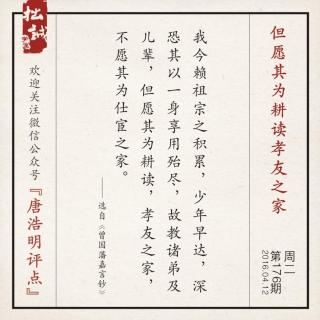 但愿其为耕读孝友之家
我今赖祖宗之积累，少年早达，深
恐其以一身享用殆尽，故教诸弟及
儿辈，但愿其为耕读，孝友之家，
不愿其为仕宦之家。
——选自《曾国藩嘉言钞》
周二
第176期
2016.04.12
欢迎关注微信公众号
『唐浩明评点』